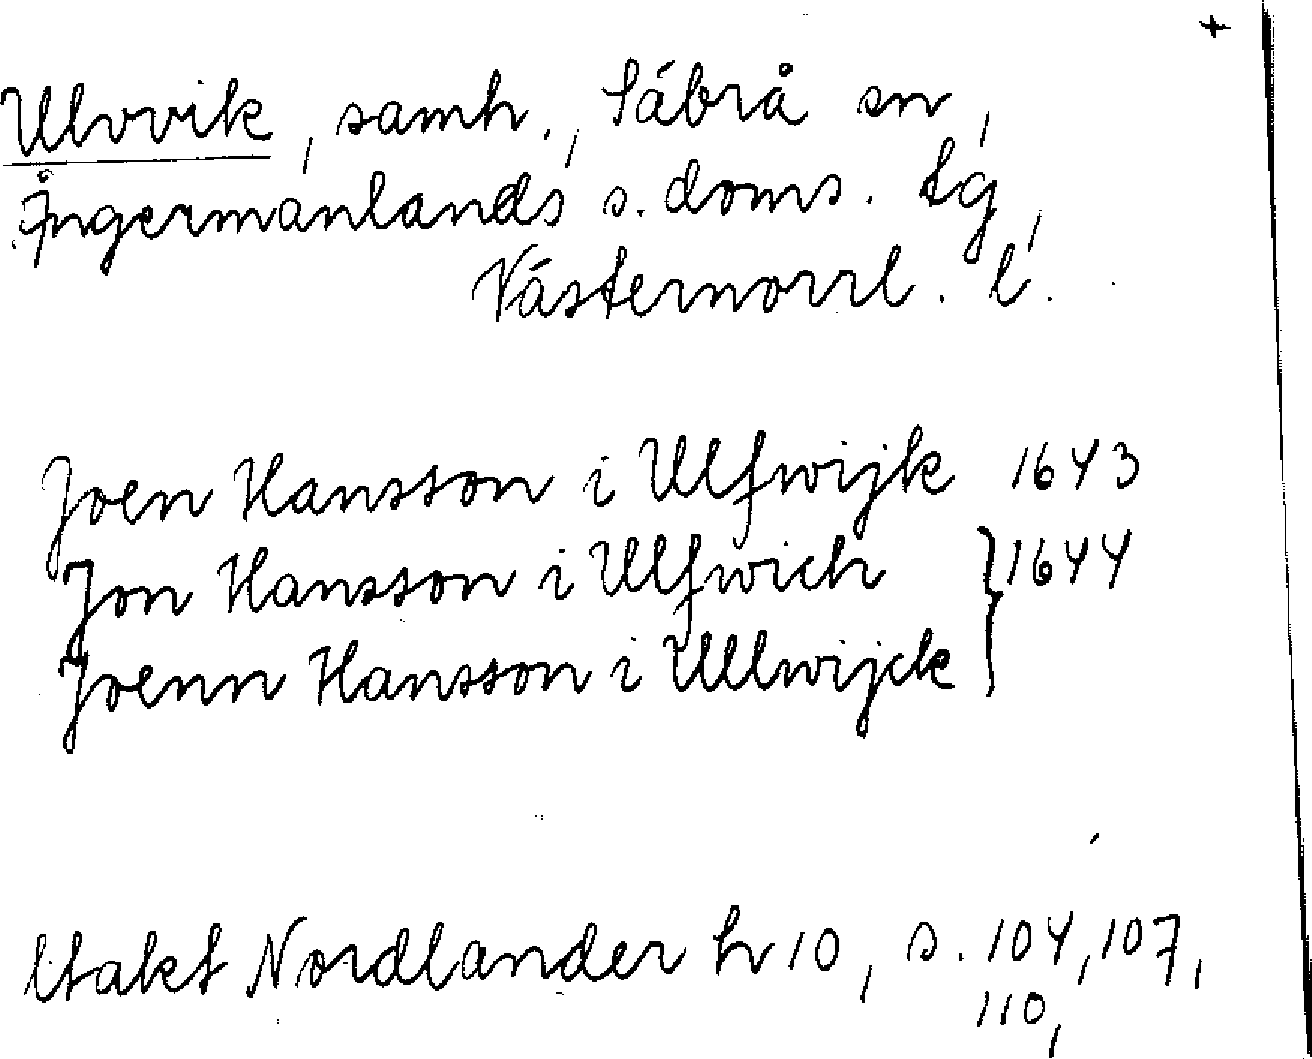 +
Ulvvik, samh., Säbrå sn,
Ångermanlands s. doms. tg,
Västernorrl. l.
Joen Hansson i Ulfwijk 1643
Jon Hansson i Ulfwich } 1644
Joenn Hansson i Ullwijck
Utakt Nordlander h 10, s. 104, 107,
110,